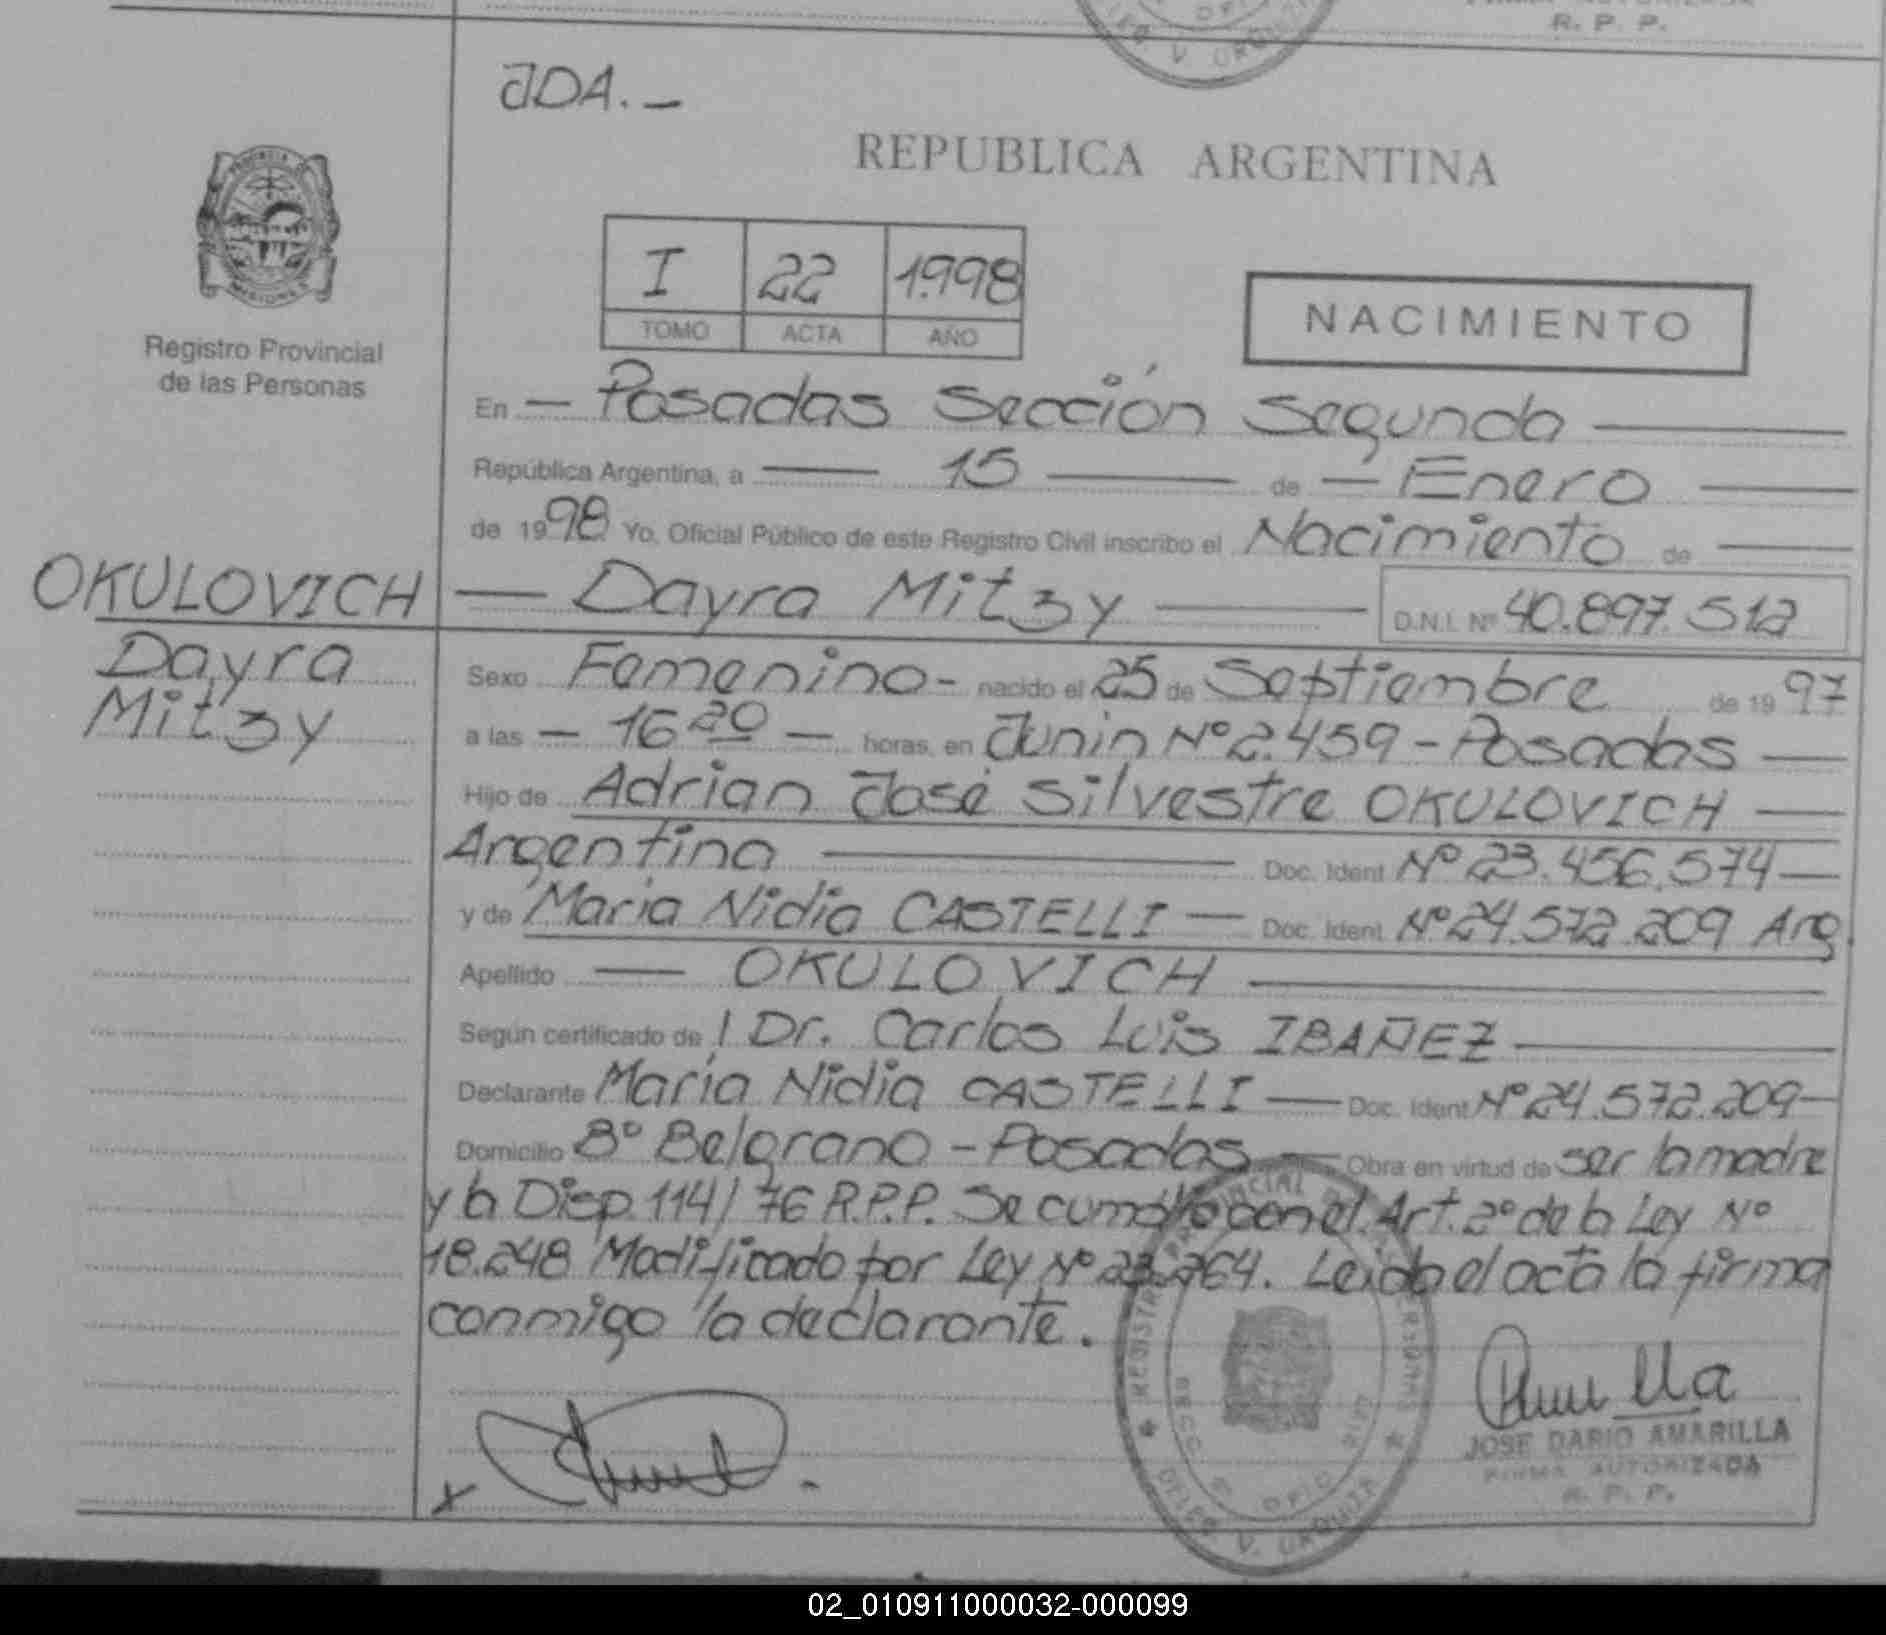 R. P. P.
JDA. _
REPUBLICA ARGENTINA
I 22 1.998
TOMO ACTA AÑO
NACIMIENTO
MISIONES
Registro Provincial
de las Personas
En — Posadas Sección Segunda
República Argentina, a 15 de — Enero
de 1998 Yo, Oficial Público de este Registro Civil inscribo el Nacimiento de
OKULOVICH — Dayra Mitzy D.N.I. Nº 40.897.512
Dayra
Mitzy
Sexo Femenino - nacido el 25 de Septiembre de 1997
a las — 16 20 — horas, en Junin Nº 2.459 - Posadas
Hijo de Adrian José Silvestre OKULOVICH
Argentino Doc. Ident Nº 23.456.574
y de Maria Nidia CASTELLI — Doc. Ident. Nº 24.572.209 Arg
Apellido OKULOVICH
Según certificado de l Dr. Carlos Luis IBAÑEZ
Declarante María Nidia CASTELLI — Doc. Ident Nº 24.572.209
Domicilio Bº Belgrano - Posadas — Obra en virtud de ser la madre
y la Disp. 114/76 R.P.P. Se cumplió con el Art. 2º de la Ley Nº
18.248 Modificado por Ley Nº 23.264. Leida el acta la firma
conmigo la declarante.
JOSE DARIO AMARILLA
FIRMA AUTORIZADA
R. P. P.
DELEG. V. URQUIZA
02_010911000032-000099